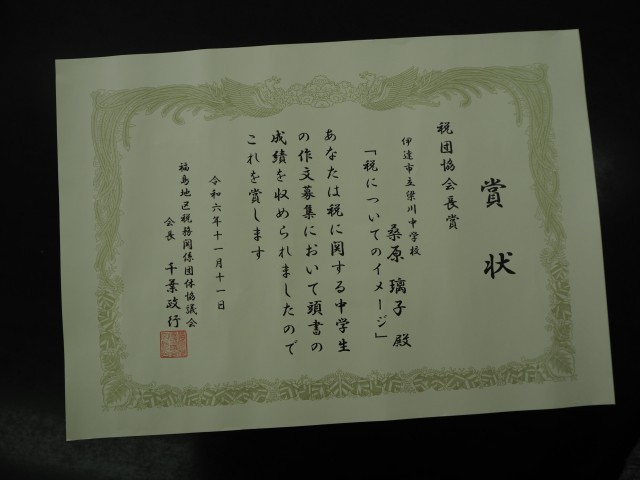 賞状
税団協会長賞
伊達市立梁川中学校
桑原 璃子 殿
「税についてのイメージ」
あなたは税に関する中学生
の作文募集において頭書の
成績を収められましたので
これを賞します
令和六年十一月十一日
福島地区税務関係団体協議会
会長 千葉政行